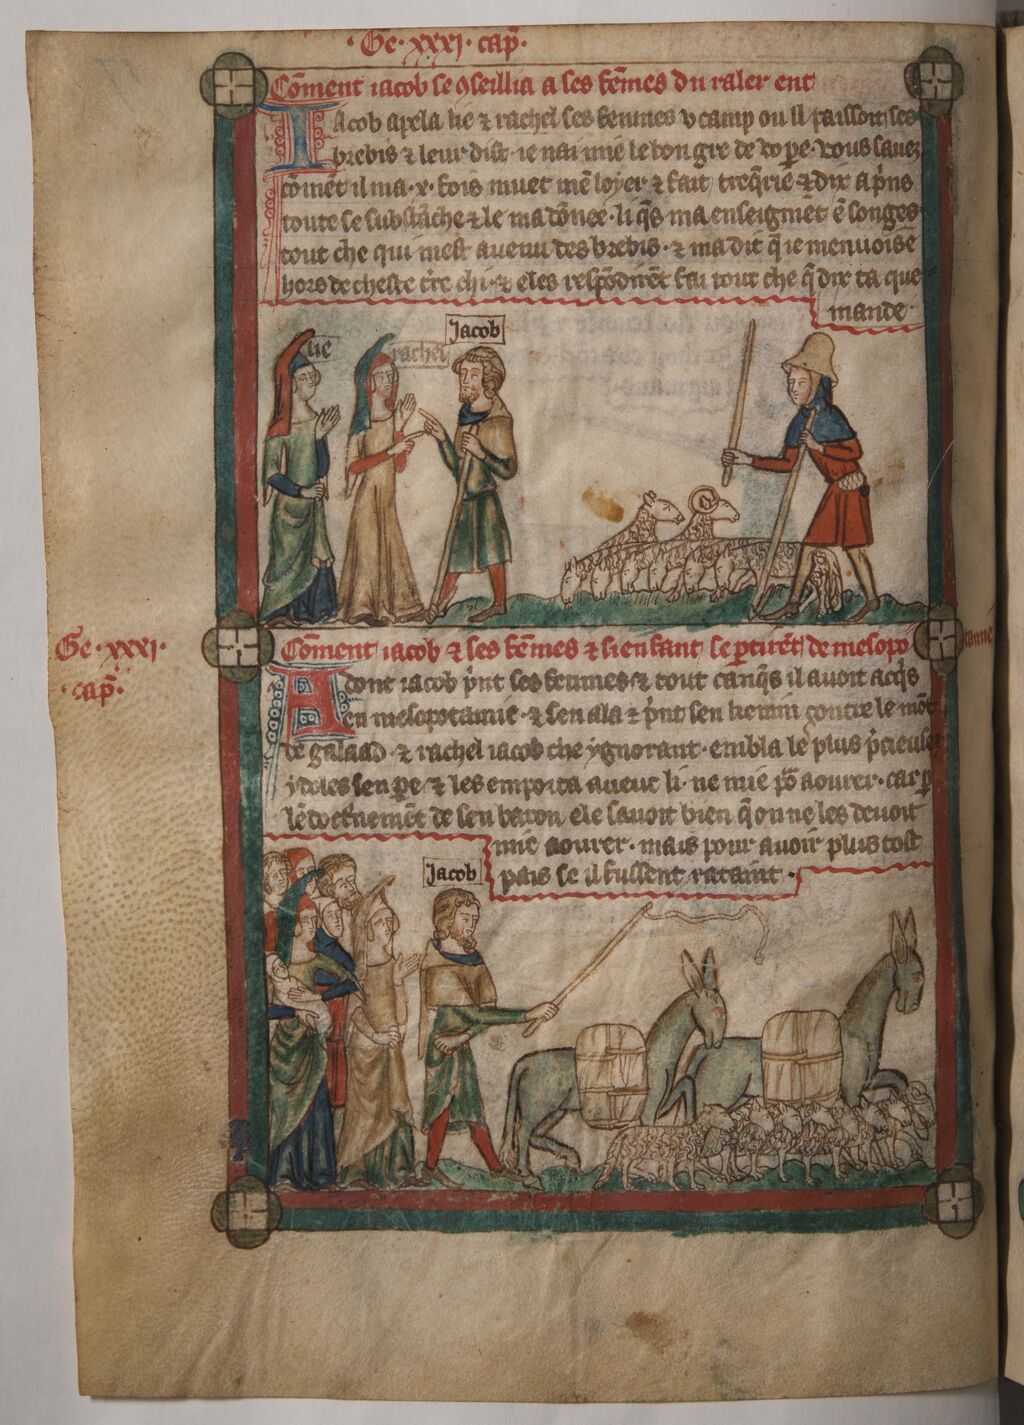 ·Ge·xxxj·cap̃·
Cõment iacob se ꝯseillia a ses fẽmes du raler ent
Iacob apela lie ⁊ rachel ses femmes v camp ou il paissoit ses
brebis ⁊ leur dist·ie nai mie le bon gre de vo pe·vous saues
cõmẽt il ma·x·fois muet mẽ loyer ⁊ fait ⁊ dix a
toute se substãche ⁊ le ma dõnee·li q̃s ma enseignnẽt ẽ songes
tout che qui mest auenu des brebis·⁊ ma dit q̃ ie menuoise
hors de cheste tr̃e chi·⁊ eles respõdirẽt fai tout che q̃ dix ta que
mande·
lie
rachel
Jacob
Ge·xxxj·
·cap̃·
Cõment iacob ⁊ ses fẽmes ⁊ si enfant se ꝑtirẽt de mesopo
tamie
Adont iacob p̃nt ses femmes ⁊ tout canq̃s il auoit acq̃s
en mesopotamie·⁊ sen ala ⁊ p̃nt sen kemin contre le mõt
de galaad·⁊ rachel iacob che ygnorant·embla le plus p̃cieuses
ydoles sen pe·⁊ les emporta aueuc li·ne mie põ aourer·car p
lẽ de sen baron ele sauoit bien q̃ on ne les deuoit
mie aourer·mais pour auoir plus tost
pais se il fussent rataint·
Jacob